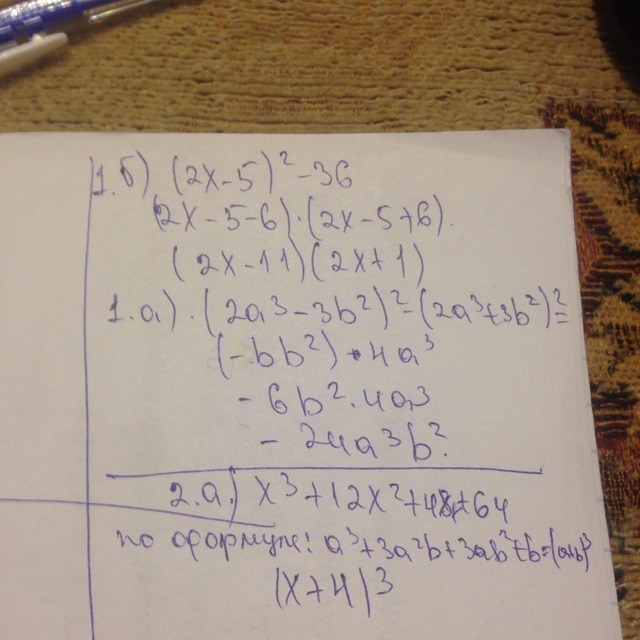 1.б) (2x-5)²-36
(2x-5-6)·(2x-5+6).
(2x-11)(2x+1)
1.а).(2a³-3b²)²-(2a³+3b²)²=
(-6b²)·4a³
-6b²·4a³
-24a³b².
2.а.) x³+12x²+48x+64
по формуле: a³+3a²b+3ab²+b=(a+b)³
(x+4)³